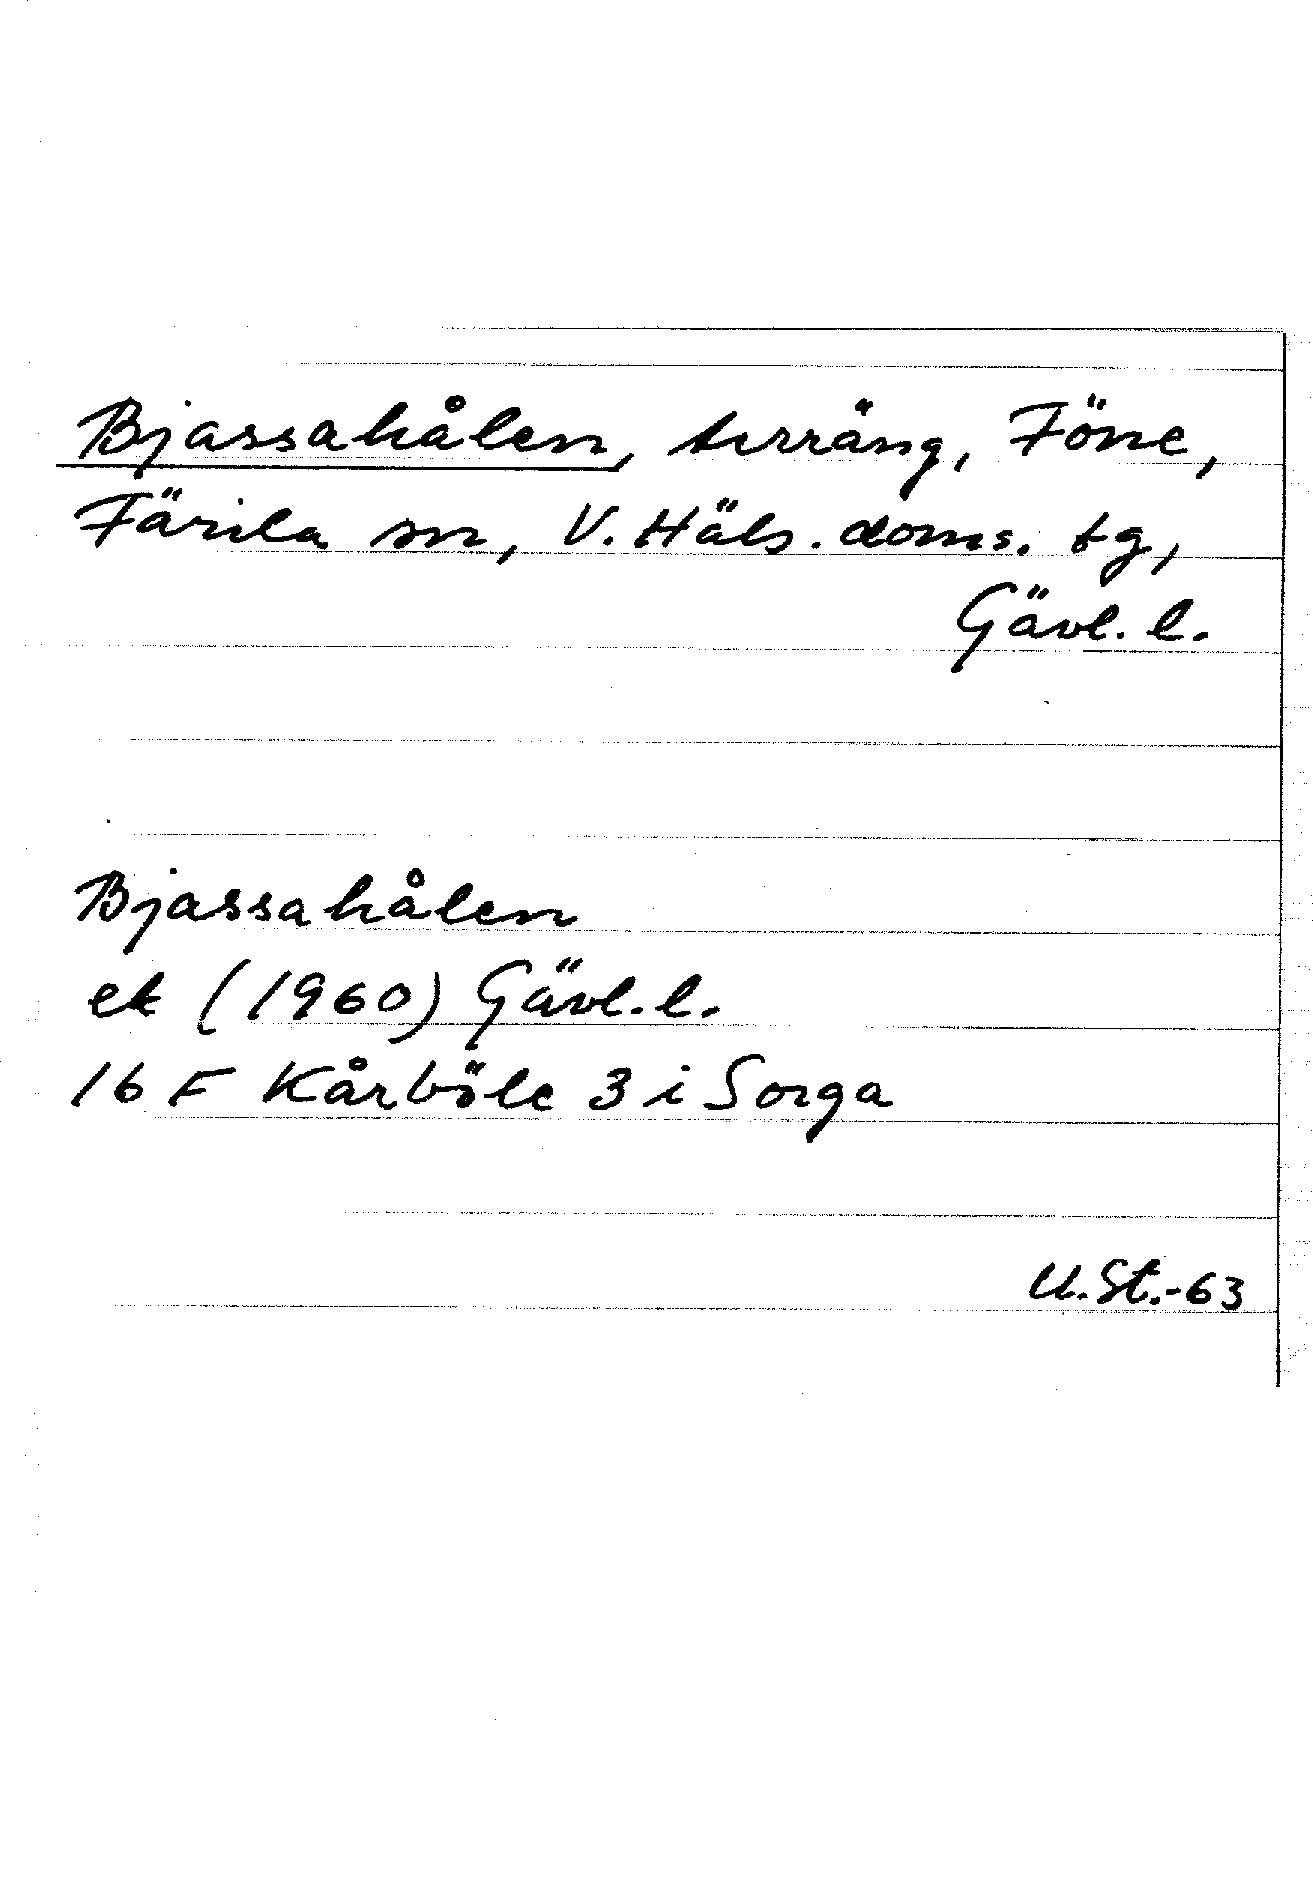 Bjassahålen, terräng, Föne,
Färila sn, V. Häls. doms. tg,
Gävl. l.
Bjassahålen
ek (1960) Gävl. l.
16 F Kårböle 3 i Sorga
U. St. -63